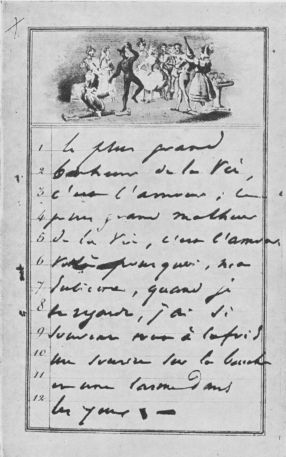 1 Le plus grand
2 bonheur de la Vie,
3 c'est l'amour ; le
4 plus grand malheur
5 de la Vie, c'est l'amour
6 Voilà pourquoi, ma
7 quand je
8 regarde, j'ai si
9 souvent à la fois
10 un sourire sur la bouche
11 et une larme dans
12 les yeux